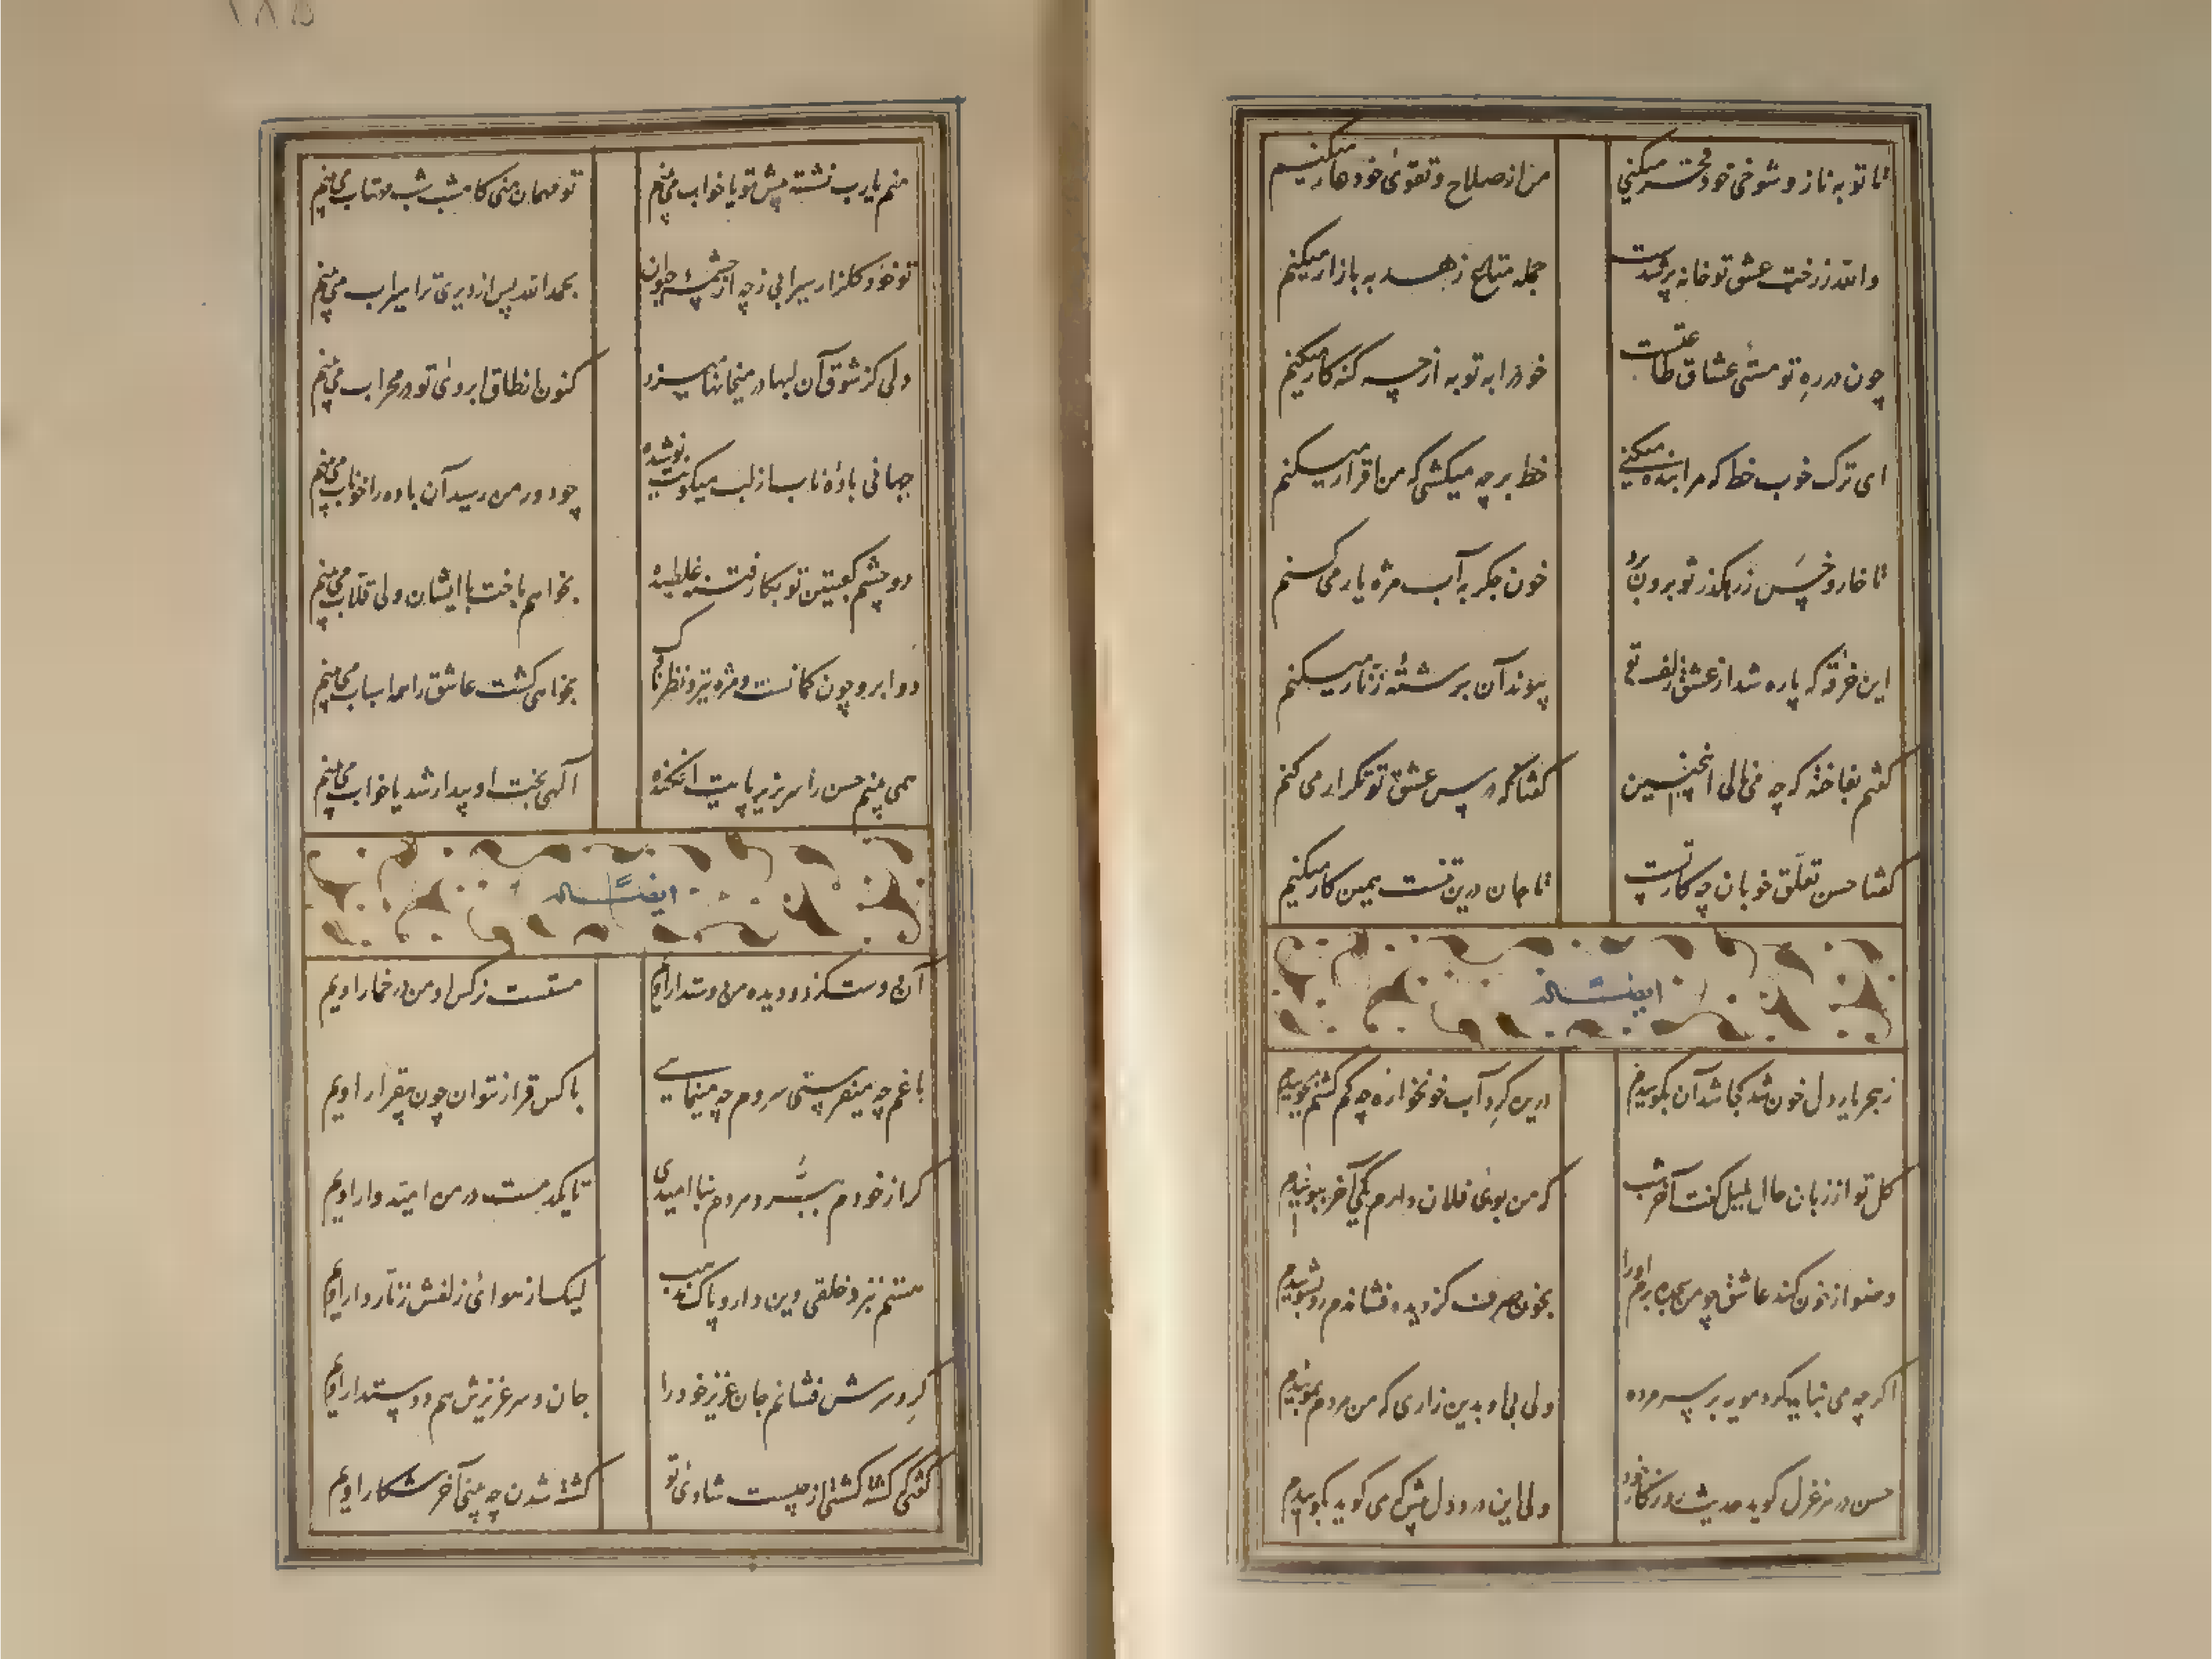 تا تو به ناز و شوخی خود فخر میکنی
من از صلاح و تقوی خود عار میکنم
والله ز رخت عشق تو خانه پر شدست
جمله متاع زهد به بازار میکنم
چون در ره تو مستی عشاق طاعتست
خود را به توبه از چه گنه کار میکنم
ای ترک خوب خط که مرا بنده میکنی
خط بر چه میکشی که من اقرار میکنم
تا خار و خس ز رهگذر تو برون برد
خون جگر به آب مژه یار می کنم
این خرقه که پاره شد از عشق زلف تو
پیوند آن بر شته زنار میکنم
گفتم بفاخته که چه می نالی انچنین
گفتا که درس عشق تو تکرار می کنم
گفتا حسن تعلق خوبان چه کار تست
تا جان درین تنست همین کار میکنم
ایضاً له
ز هجر یار دل خون شد کجا شد آن بگوییدم
درین گرد آب خونخواره چه کم گشتم بجوییدم
گل تو از زبان حال بلبل گفت آخر شب
که من بوی فلان دارم یکی آخر ببوییدم
وضو از خون کند عاشق چو من بهره برم او را
بخون صرفت کز دیده فشاندم رو بشوییدم
اگر چه می نباید کرد مویه بر سر مرده
ولی بی او بدین زاری که من مردم بموییدم
حسن در هر غزل گوید حدیث
ولی این درد دل پیش که می گوید بگوییدم
منم یارب نشسته پیش تو یا خواب می بینم
تو مهمان منی کامشب شب مهتاب می بینم
تو خود گلزار سیرابی ز چه از چشمه حیوان
بحمد الله پس از دیری ترا سیراب می بینم
ولی کز شوق آن لبها در میخانها میزد
کنون از طاق ابروی تو در محراب می بینم
جهانی باده ناب از لب میگونت نوشیده
چو دور من رسید آن باده را خوناب می بینم
دو چشم کعبتین تو بکار فتنه غلطیده
بخواهم باخت با ایشان ولی قلاب می بینم
دو ابرو چون کمانست و مژه تیر و نظر
بخواهی کشت عاشق را همه اسباب می بینم
همی بینم حسن را سر بزیر پایت افکنده
الهی بخت او بیدار شد یا خواب می بینم
ایضاً له
آن دوست کز دو دیده من دوستدار اویم
مستست نرگس او من در خمار اویم
با غم چه میفرستی سردم چه مینمایی
با کس قرار نتوان چون بیقرار اویم
گر از خودم ببرد مردم بنا امیدی
تا یکدمست در من امیدوار اویم
هستم بنزد خلقی دین دار و پاک مذهب
لیک از هوای زلفش زنار دار اویم
گر در سرش فشانم جان عزیز خود را
جان و سر عزیزش هم دوستدار اویم
گفتی که کشته گشتی از چیست شادی تو
کشته شدن چه بینی آخر شکار اویم